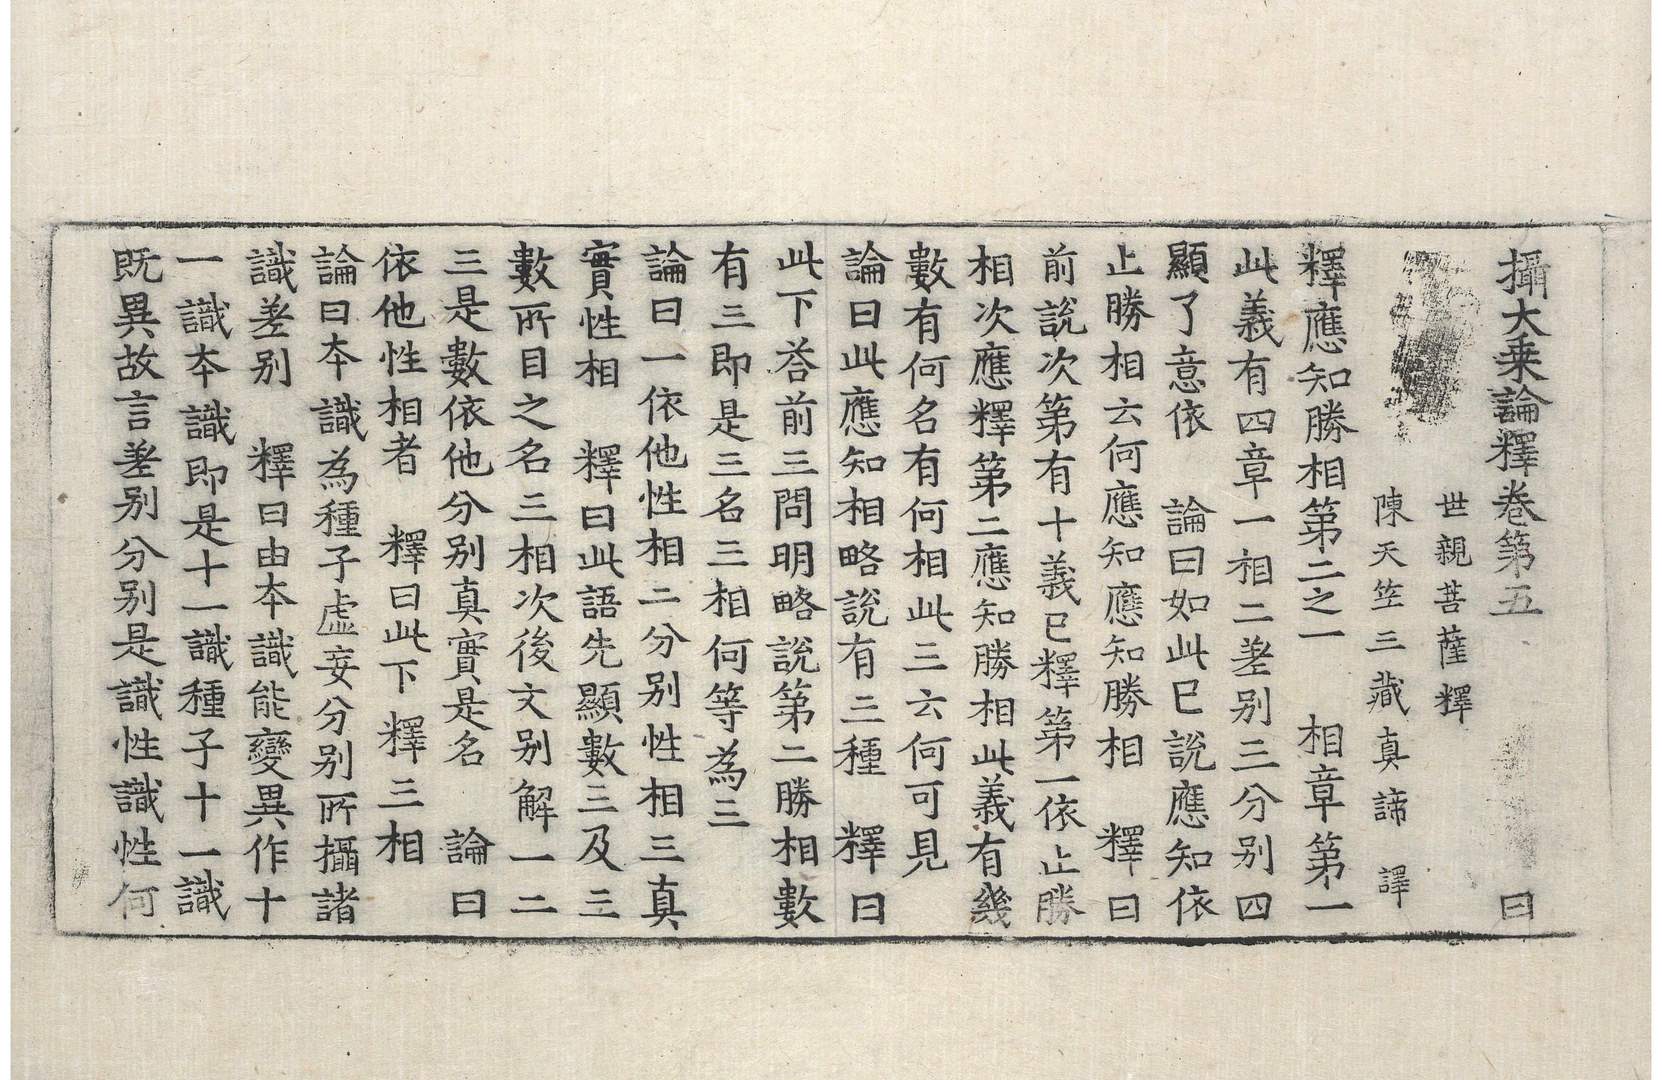 攝大乗論釋卷第五 曰
世親菩薩釋
陳天竺三藏真諦 譯
釋應知勝相第二之一 相章第一
此義有四章一相二差别三分别四
顯了意依 論曰如此已說應知依
止勝相云何應知應知勝相 釋曰
前說次第有十義已釋第一依止勝
相次應釋第二應知勝相此義有幾
數有何名有何相此三云何可見
論曰此應知相略說有三種 釋曰
此下荅前三問明略說第二勝相數
有三即是三名三相何等為三
論曰一依他性相二分别性相三真
實性相 釋曰此語先顯數三及三
數所目之名三相次後文别解一二
三是數依他分别真實是名 論曰
依他性相者 釋曰此下釋三相
論曰本識為種子虛妄分别所攝諸
識差别 釋曰由本識能變異作十
一識本識即是十一識種子十一識
既異故言差别分别是識性識性何